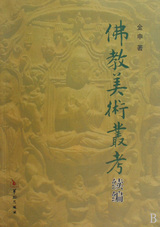 金申 著
佛教美術叢考
續編